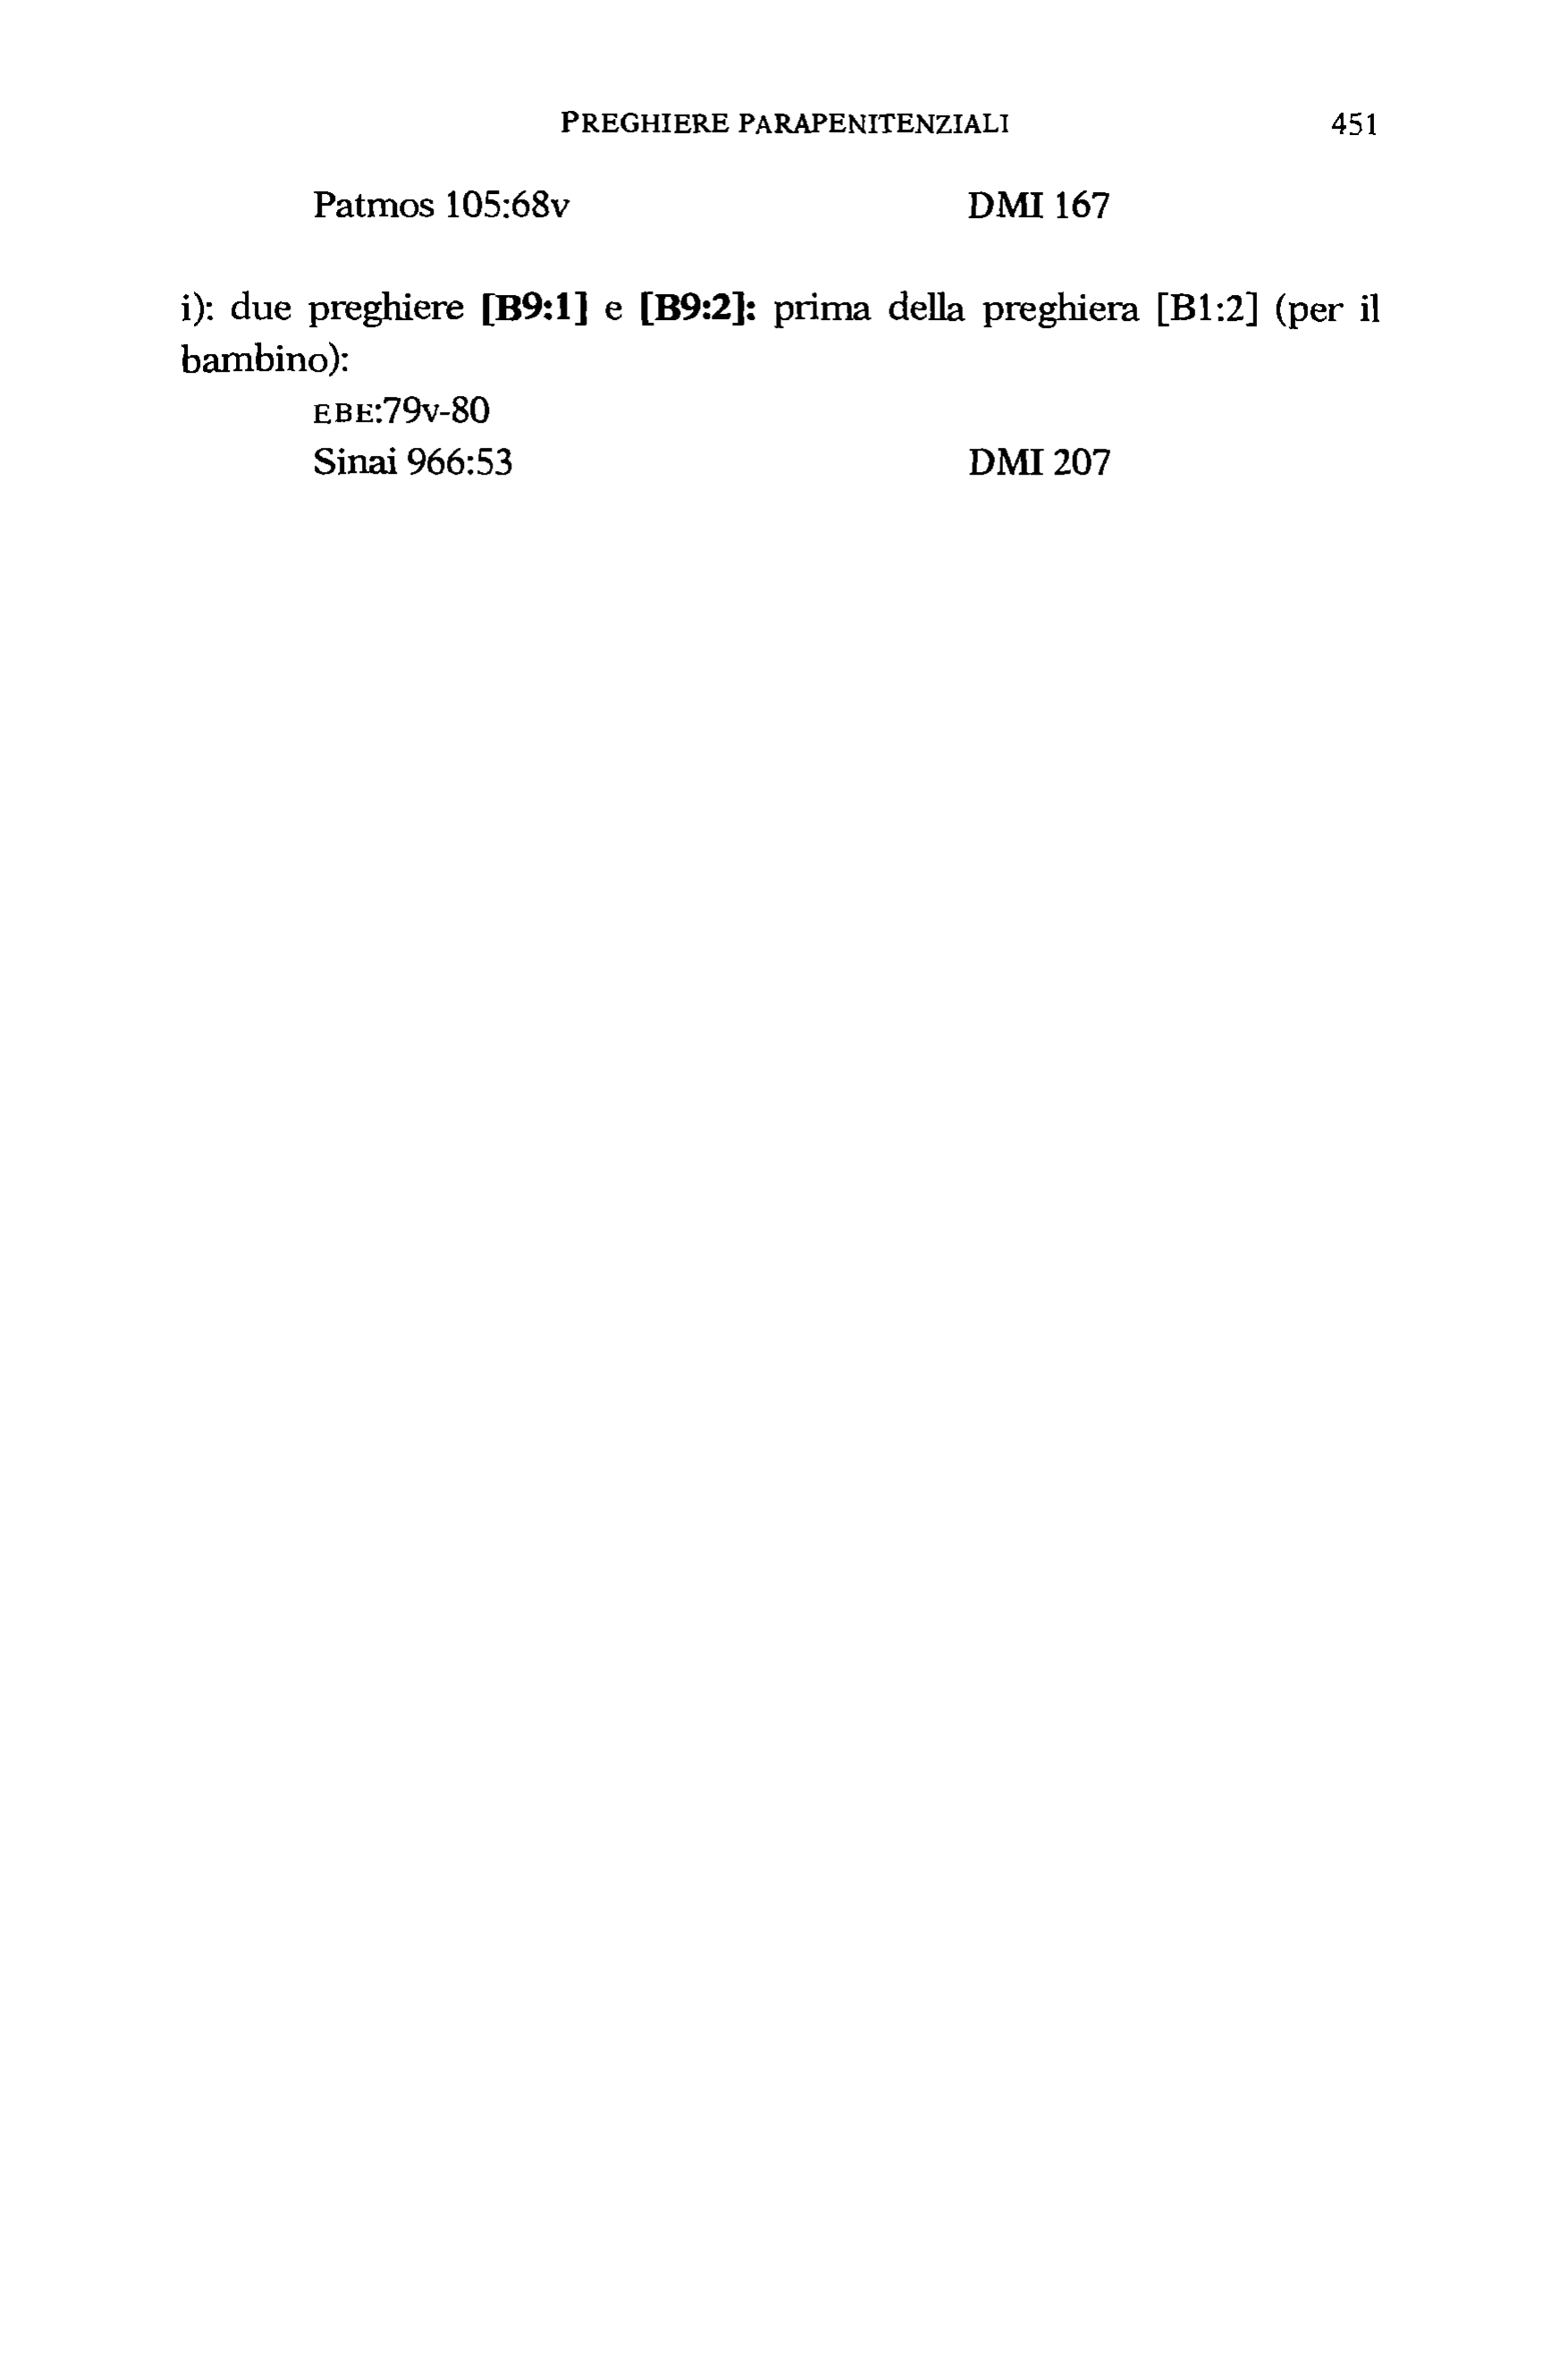 PREGHIERE PARAPENITENZIALI 451
Patmos 105:68v DMI 167
i): due preghiere [B9:1] e [B9:2]: prima della preghiera [B1:2] (per il
bambino):
EBE:79v-80
Sinai 966:53 DMI 207